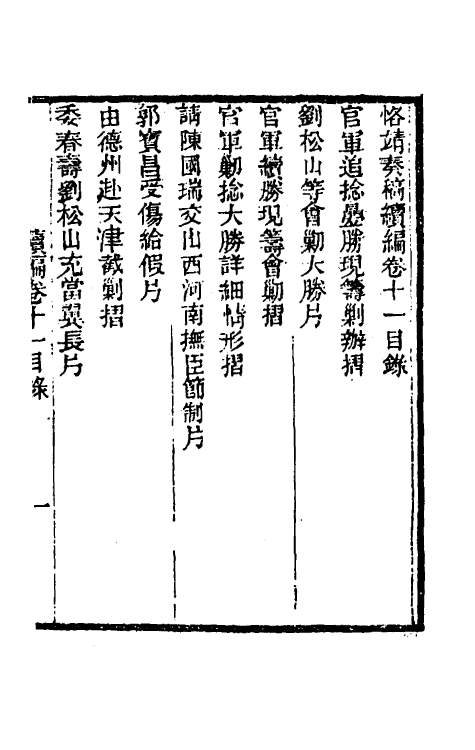 恪靖奏稿續編卷十一目錄
官軍追捻疊勝現籌剿辦摺
劉松山等會勦大勝片
官軍續勝現籌會勦摺
官軍勦捻大勝詳細情形摺
請陳國瑞交山西河南撫臣節制片
郭寶昌受傷給假片
由德州赴天津截剿摺
委春壽劉松山充當翼長片
續編卷十一目錄
一